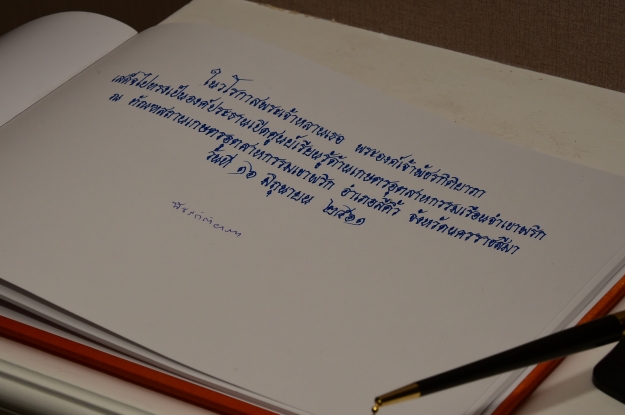 ในวโรกาสพระเจ้าหลานเธอ พระองค์เจ้าพัชรกิติยาภา
เสด็จไปทรงเป็นองค์ประธานเปิดศูนย์เรียนรู้ด้านเกษตรอุตสาหกรรมเรือนจำเขาพริก
ณ ทัณฑสถานเกษตรอุตสาหกรรมเขาพริก อำเภอสีคิ้ว จังหวัดนครราชสีมา
วันที่ ๑๖ มิถุนายน ๒๕๖๑